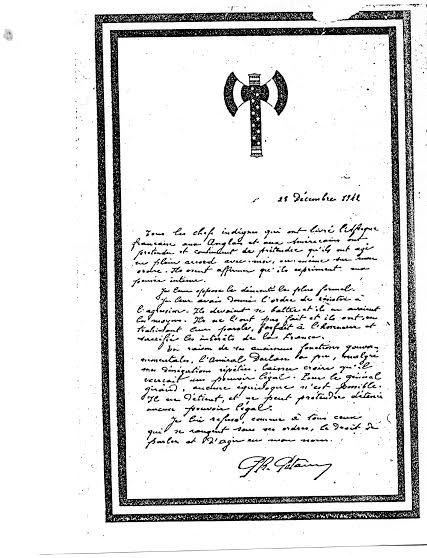 25 décembre 1942
Tous les chefs indignes qui ont livré l'Afrique
française aux Anglais et aux Américains ont
prétendu et continuent de prétendre qu'ils ont agi
en plein accord avec moi, ou même sur mon
ordre. Ils osent affirmer qu'ils expriment ma
pensée intime.
Je leur oppose le démenti le plus formel.
Je leur avais donné l'ordre de résister à
l'agression. Ils devaient se battre et ils en avaient
les moyens. Ils ne l'ont pas fait et ils ont, en
trahissant leur parole, forfait à l'honneur et
sacrifié les intérêts de la France.
En raison de ses anciennes fonctions gouver-
nementales, l'Amiral Darlan a pu, malgré
mes dénégations répétées, laisser croire qu'il
exerçait un pouvoir légal. Pour le général
Giraud, aucune équivoque n'est possible.
Il ne détient, et ne peut prétendre détenir
aucun pouvoir légal.
Je lui refuse, comme à tous ceux
qui se rangent sous ses ordres, le droit de
parler et d'agir en mon nom.
Ph. Pétain